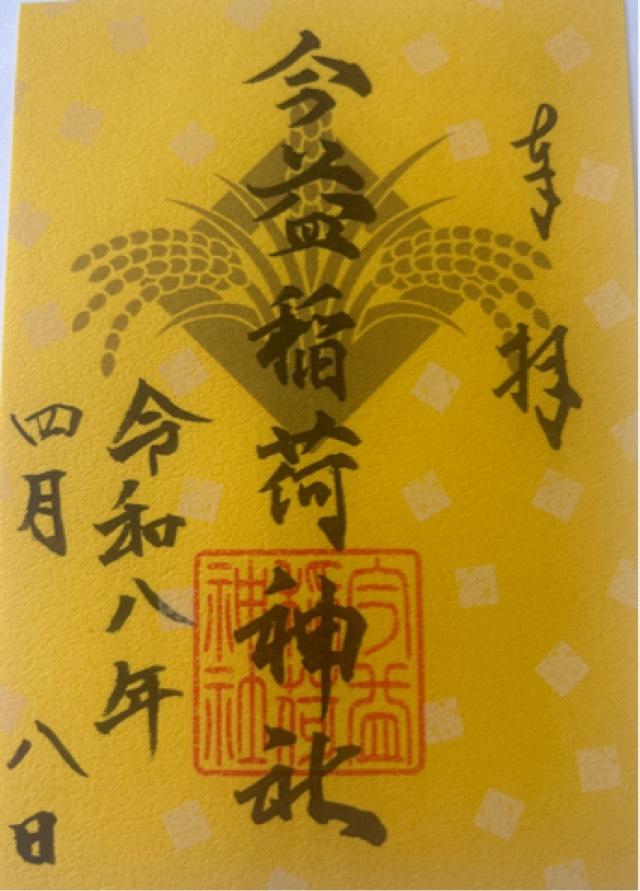 奉拝
今益稲荷神社
令和八年
四月八日
今益
稲荷
神社